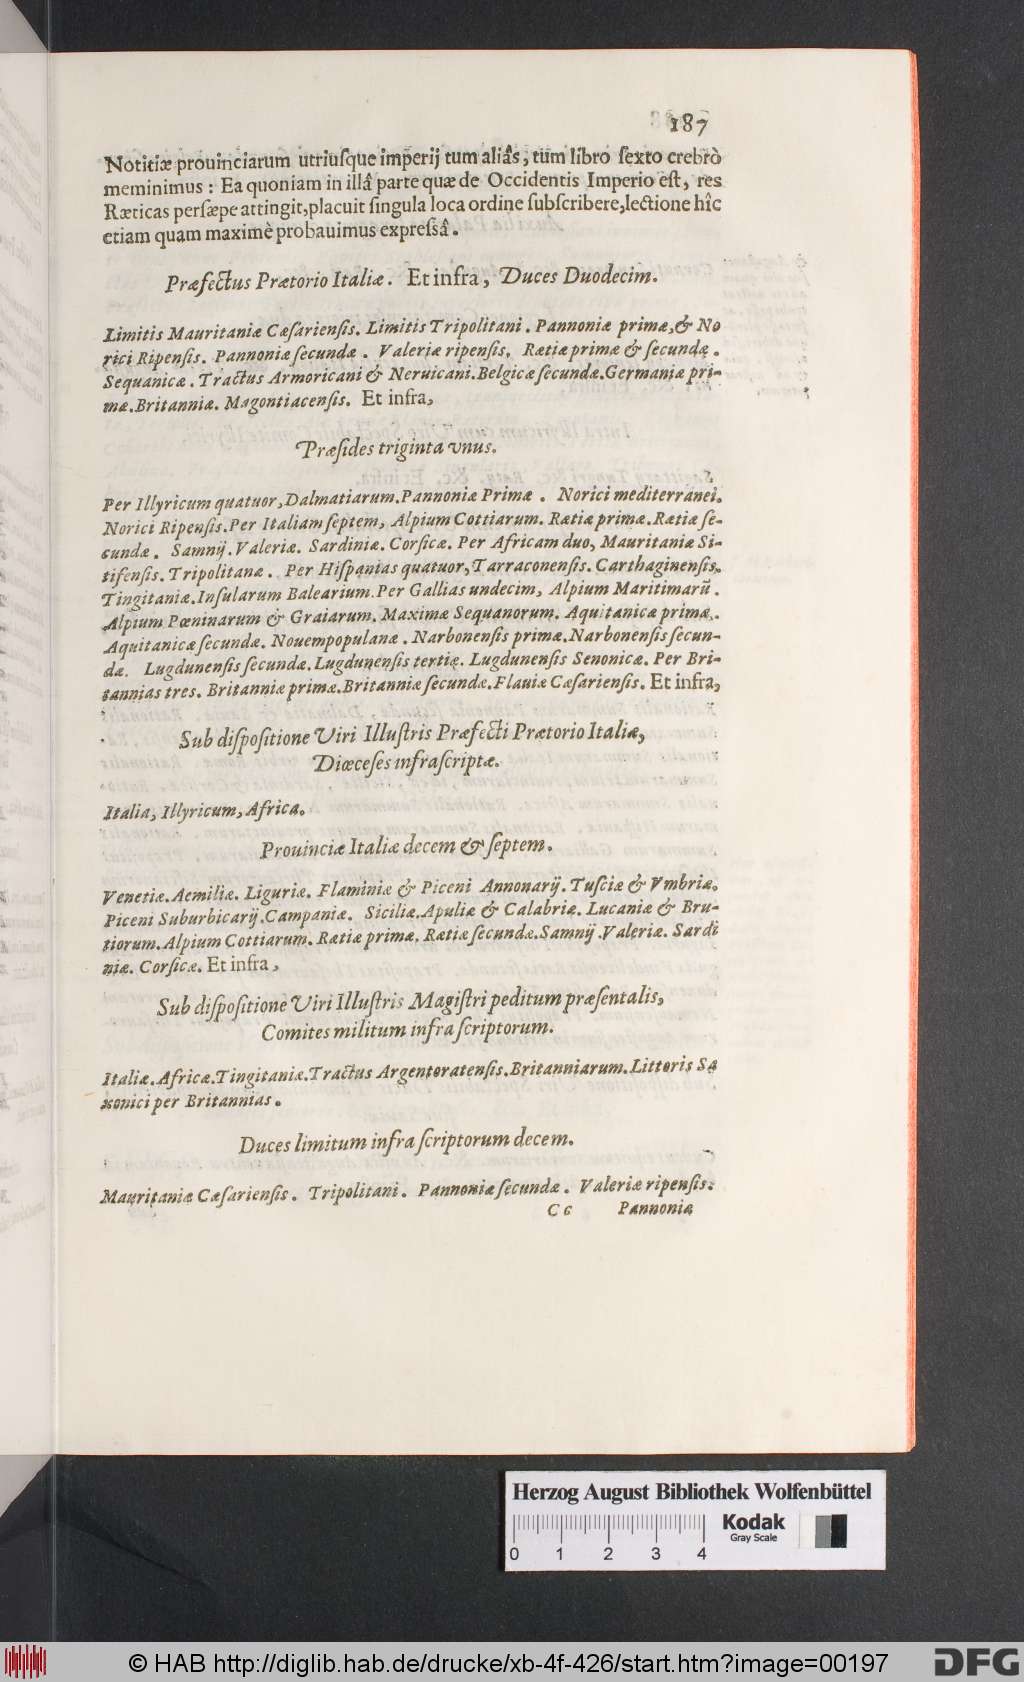 187
Notitiæ prouinciarum utriuſque imperij tum aliâs, tùm libro ſexto crebrò
meminimus: Ea quoniam in illâ parte quæ de Occidentis Imperio eſt, res
Ræticas perſæpe attingit, placuit ſingula loca ordine ſubſcribere, lectione hîc
etiam quam maximè probauimus expreſsâ.
Præfectus Prætorio Italiæ. Et infra, Duces Duodecim.
Limitis Mauritaniæ Cæſarienſis. Limitis Tripolitani. Pannoniæ primæ, & No
rici Ripenſis. Pannoniæ ſecundæ. Valeriæ ripenſis. Rætiæ primæ & ſecundæ.
Sequanicæ. Tractus Armoricani & Neruicani. Belgicæ ſecundæ. Germaniæ pri-
mæ. Britanniæ. Magontiacenſis. Et infra,
Præſides triginta vnus.
Per Illyricum quatuor, Dalmatiarum. Pannoniæ Primæ. Norici mediterranei.
Norici Ripenſis. Per Italiam ſeptem, Alpium Cottiarum. Rætiæ primæ. Rætiæ ſe-
cundæ. Samnij. Valeriæ. Sardiniæ. Corſicæ. Per Africam duo, Mauritaniæ Si-
tifenſis. Tripolitanæ. Per Hiſpanias quatuor, Tarraconenſis. Carthaginenſis.
Tingitaniæ. Inſularum Balearium. Per Gallias undecim, Alpium Maritimarũ.
Alpium Pœninarum & Graiarum. Maximæ Sequanorum. Aquitanicæ primæ.
Aquitanicæ ſecundæ. Nouempopulanæ. Narbonenſis primæ. Narbonenſis ſecun-
dæ. Lugdunenſis ſecundæ. Lugdunenſis tertiæ. Lugdunenſis Senonicæ. Per Bri-
tannias tres. Britanniæ primæ. Britanniæ ſecundæ. Flauiæ Cæſarienſis. Et infra,
Sub diſpoſitione Viri Illuſtris Præfecti Prætorio Italiæ,
Diœceſes infraſcriptæ.
Italia, Illyricum, Africa.
Prouinciæ Italiæ decem & ſeptem.
Venetiæ. Aemiliæ. Liguriæ. Flaminiæ & Piceni Annonarij. Tuſciæ & Vmbriæ.
Piceni Suburbicarij. Campaniæ. Siciliæ. Apuliæ & Calabriæ. Lucaniæ & Bru-
tiorum. Alpium Cottiarum. Rætiæ primæ. Rætiæ ſecundæ. Samnij. Valeriæ. Sardi
niæ. Corſicæ. Et infra,
Sub diſpoſitione Viri Illuſtris Magiſtri peditum præſentalis,
Comites militum infra ſcriptorum.
Italiæ. Africæ. Tingitaniæ. Tractus Argentoratenſis. Britanniarum. Littoris Sa
xonici per Britannias.
Duces limitum infra ſcriptorum decem.
Mauritaniæ Cæſarienſis. Tripolitani. Pannoniæ ſecundæ. Valeriæ ripenſis.
Cc Pannoniæ
Herzog August Bibliothek Wolfenbüttel
Kodak
Gray Scale
0 1 2 3 4
© HAB http://diglib.hab.de/drucke/xb-4f-426/start.htm?image=00197
DFG